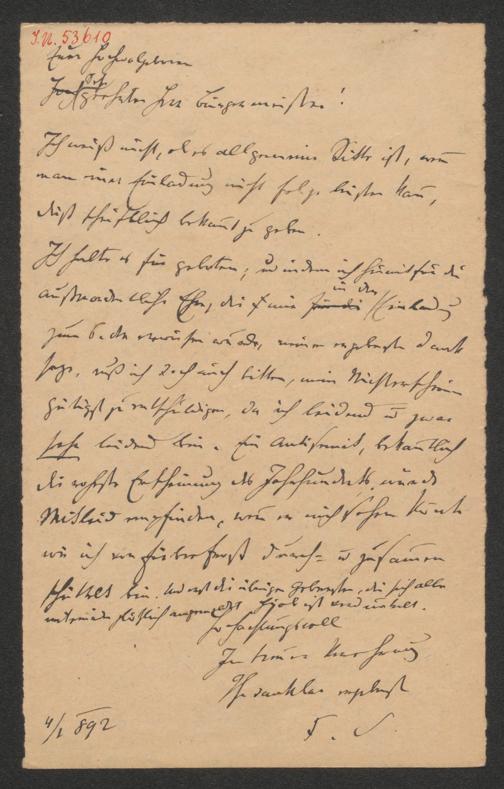 I.N. 53610
Euer Hochwolgeboren
geehrter Herr Bürgermeister!
Ich weiß nicht, ob es allgemeine Sitte ist, wenn
man einer Einladung nicht folge leisten kann,
dieß schriftlich bekannt zu geben.
Ich halte es für geboten; u indem ich hiemit für die
außerordentliche Ehre, die mir in der Einladung
zum 6. erwiesen wurde, meinen ergebensten Dank
sage, muß ich doch auch bitten, mein Nichterscheinen
gütigst zu entschuldigen, da ich leidend u zwar
sehr leidend bin. Ein Antisemit, bekanntlich
die roheste Erscheinung des Jahrhunderts, würde
Mitleid empfinden, wenn er mich sehen könnte
wie ich von Fieberfrost durch= u zusammen
schüttelt bin. Und erst die übrigen Gebresten, die sich alle
miteinander plötzlich angemeldet. Hjob ist
Hochachtungsvoll
In treuer Verehrung
dankbar ergebenst
F. S.
4/1 892